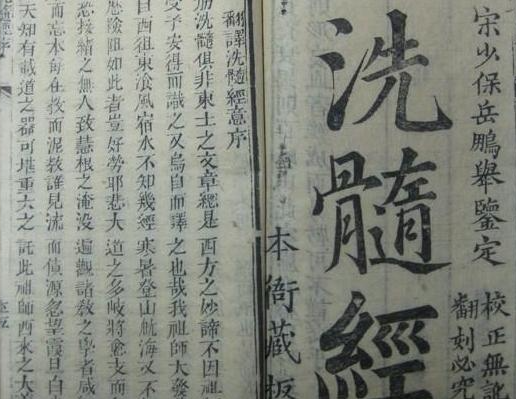 宋少保岳鵬舉鑒定
洗髓經
校正無訛
翻刻必究
本衙藏板
翻譯洗髓經意序
洗髓俱非東土之文章總是西方之妙諦不因祖
受予安得而識之又烏自而譯之也哉我祖師大發
自西徂東飡風宿水不知幾經寒暑登山航海又不
險阻如此者豈好勞耶悲大道之多岐將愈支而
恐接緒之無人致慧根之淹沒遍觀諸教之學者咸
而忘本每在教而泥教誰見流而源忽望霞旦白
天知有載道之器可堪重大之託此祖師西來之大